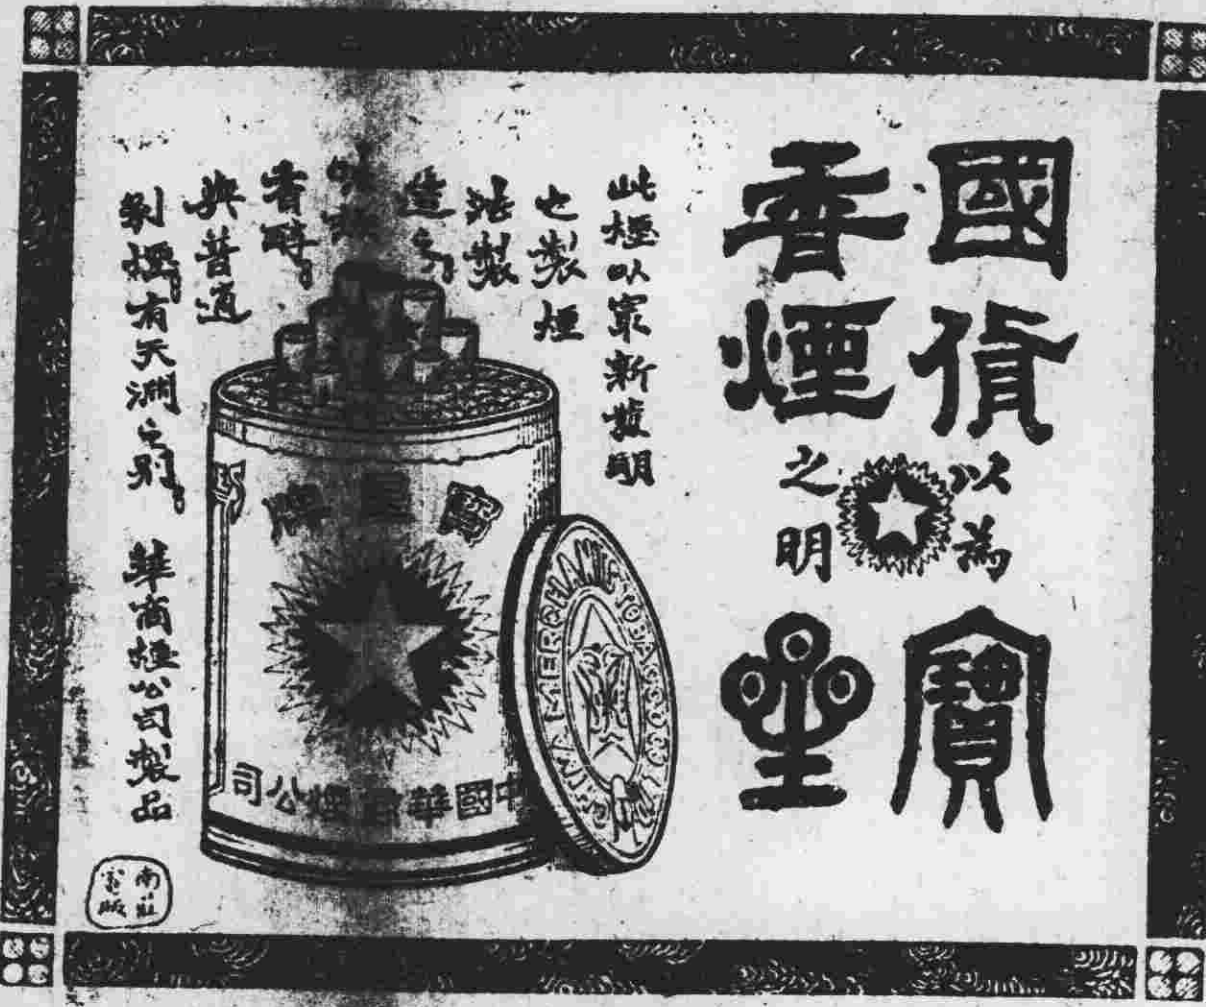 國貨以為寶
香煙之明星
此煙以最新發明
之製煙
法製
造
味
香醇。
與普通
製煙。有天淵之別。
華商煙公司製品
寶星牌
中國華商煙公司
CHINA MERCHANTS TOBACCO CO